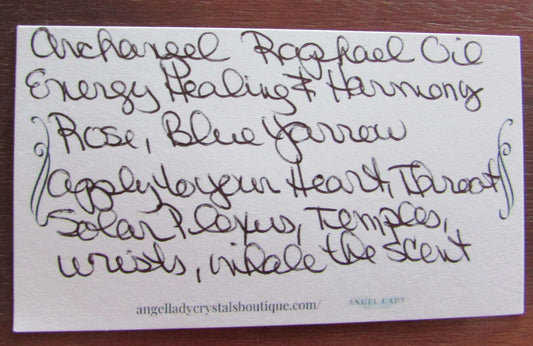 Archangel Raphael Oil
Energy Healing & Harmony
Rose, Blue Yarrow
Apply to your Heart, Throat
Solar Plexus, Temples,
wrists, inhale the scent
angelladycrystalsboutique.com/ ANGEL LADY